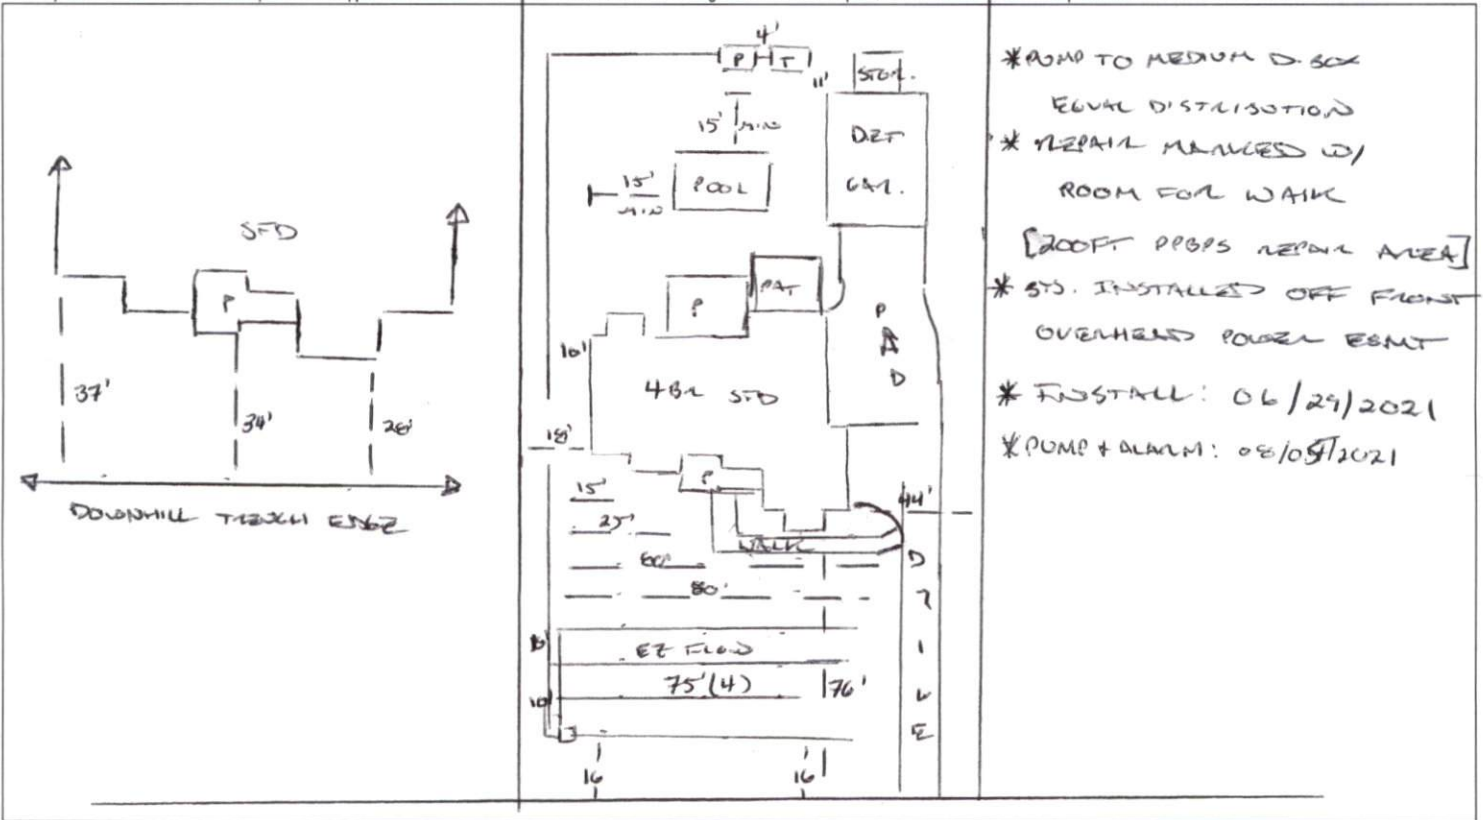 SFD
P
37'
34'
28'
DOWNHILL TRENCH EDGE
4'
P T
11'
STOR.
15' MIN
DET
GAR.
15'
MIN
POOL
P
PAT
P
A
D
10'
4BR SFD
18'
P
15'
25'
44'
WALK
60'
80'
D
R
I
V
E
EZ FLOW
75'(4)
76'
10'
16'
16'
*PUMP TO MEDIUM D-BOX
EQUAL DISTRIBUTION
* REPAIR MARKED W/
ROOM FOR WALK
[200FT PPBPS REPAIR AREA]
* SYS. INSTALLED OFF FRONT
OVERHEAD POWER ESMT
* INSTALL: 06/29/2021
*PUMP + ALARM: 08/05/2021